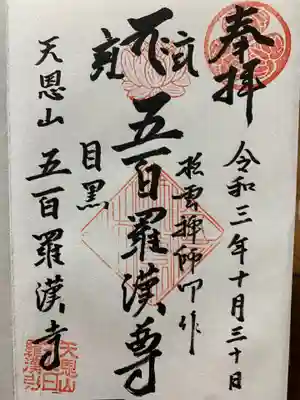 奉拝
令和三年十月三十日
松雲禅師 作
五百羅漢尊
目黒
天恩山 五百羅漢寺
天恩山